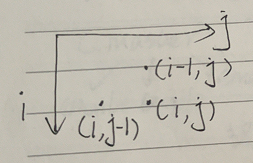 j
(i-1, j)
i (i, j-1) (i, j)